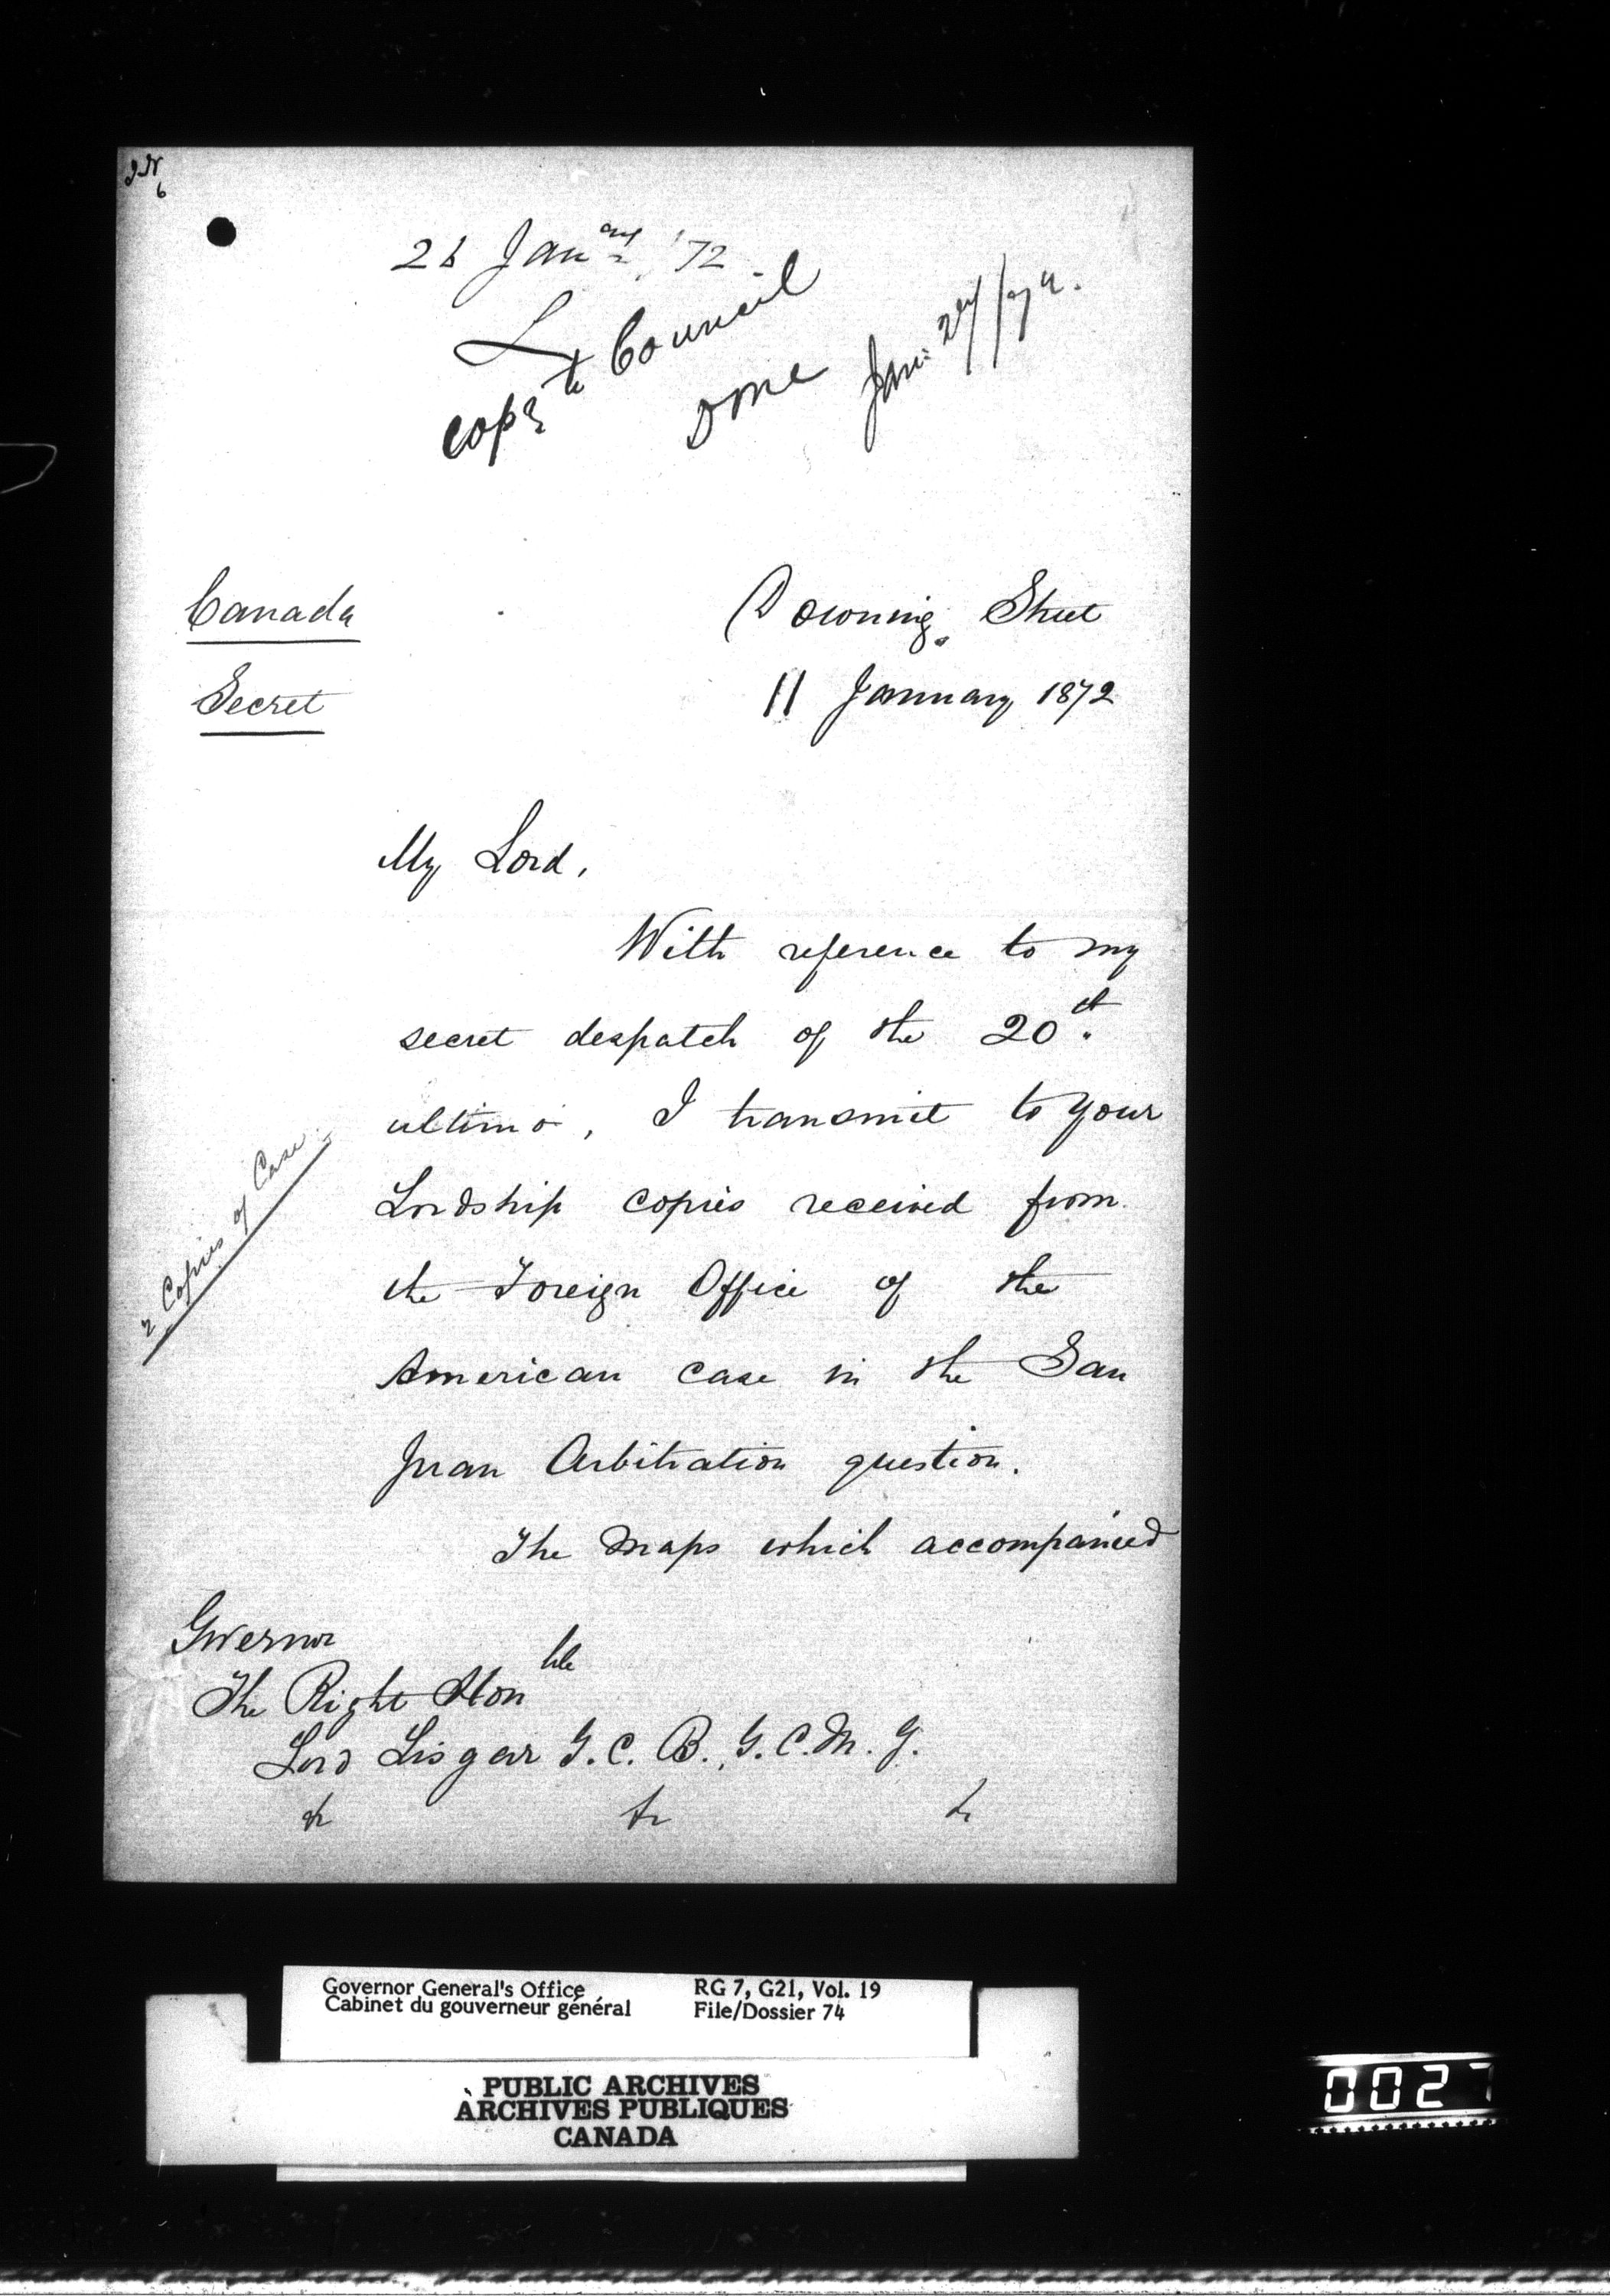 26 Jan^ary '72
L
Copy to Council
Done Jan: 27/72.
Canada
Downing Street
Secret
11 January 1872
My Lord,
With reference to my
secret despatch of the 20th.
ultimo, I transmit to your
Lordship copies received from
the Foreign Office of the
2 Copies of Case.
American case in the San
Juan Arbitration question.
The maps which accompanied
Governor
The Right Hon^ble
Lord Lisgar G.C.B., G.C.M.G.
&c &c &c
Governor General's Office
Cabinet du gouverneur général
RG 7, G21, Vol. 19
File/Dossier 74
PUBLIC ARCHIVES
ARCHIVES PUBLIQUES
CANADA
0027